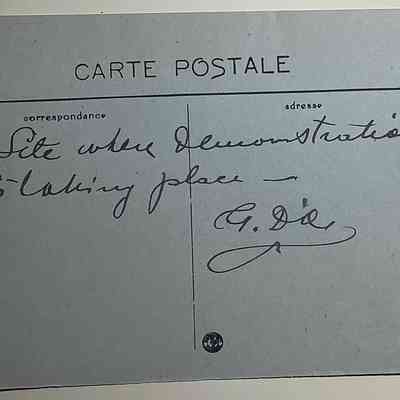 CARTE POSTALE
correspondance
adresse
Site where Demonstratio
is taking place —
G. D'O.